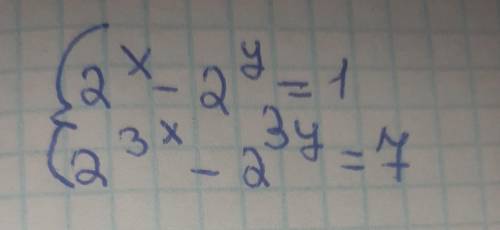 2^x - 2^y = 1
2^{3x} - 2^{3y} = 7